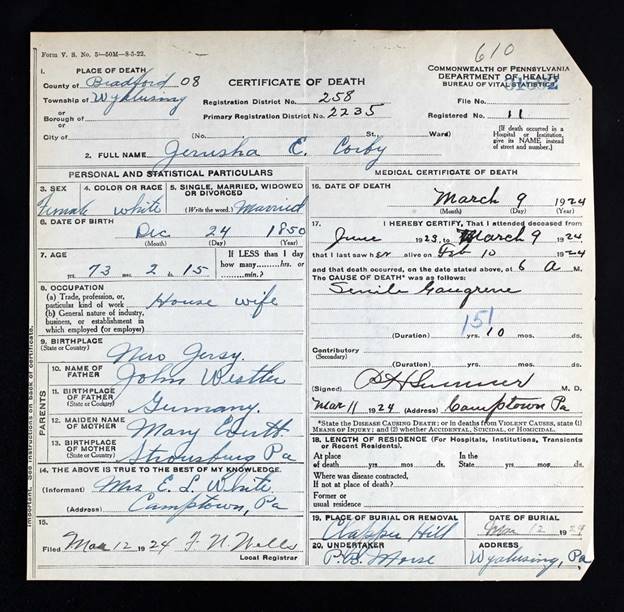 Form V. S. No. 5—50M—8-5-22.
610
1. PLACE OF DEATH
County of Bradford 08
Township of Wyalusing
or
Borough of
or
City of
(No. St. Ward)
CERTIFICATE OF DEATH
Registration District No. 258
Primary Registration District No. 2235
COMMONWEALTH OF PENNSYLVANIA
DEPARTMENT OF HEALTH
BUREAU OF VITAL STATISTICS
File No.
Registered No. 11
(If death occurred in a
Hospital or Institution,
give its NAME instead
of street and number.)
2. FULL NAME Jerusha E. Corby
PERSONAL AND STATISTICAL PARTICULARS
3. SEX
Female
4. COLOR OR RACE
white
5. SINGLE, MARRIED, WIDOWED
OR DIVORCED
(Write the word.) Married
6. DATE OF BIRTH
Dec 24 1850
(Month) (Day) (Year)
7. AGE
73 yrs. 2 mos. 15 ds.
If LESS than 1 day
how many hrs. or
min.?
8. OCCUPATION
(a) Trade, profession, or,
particular kind of work
House wife
(b) General nature of industry,
business, or establishment in
which employed (or employer)
9. BIRTHPLACE
(State or Country)
New Jersy.
PARENTS
10. NAME OF
FATHER
John
11. BIRTHPLACE
OF FATHER
(State or Country)
Germany.
12. MAIDEN NAME
OF MOTHER
Mary
13. BIRTHPLACE
OF MOTHER
(State or Country)
Stroudsburg Pa
14. THE ABOVE IS TRUE TO THE BEST OF MY KNOWLEDGE.
(Informant) Mrs. E. L. White
(Address) Camptown, Pa
15.
Filed Mar 12 1924 F. N. Wells
Local Registrar
Important. See instructions on back of certificate.
MEDICAL CERTIFICATE OF DEATH
16. DATE OF DEATH
March 9 1924
(Month) (Day) (Year)
17. I HEREBY CERTIFY, That I attended deceased from
June 1923, to March 9 1924
that I last saw her alive on Feb 10 1924
and that death occurred, on the date stated above, at 6 A M.
The CAUSE OF DEATH* was as follows:
Senile Gangrene
151
(Duration) yrs. 10 mos. ds.
Contributory
(Secondary)
(Duration) yrs. mos. ds.
(Signed) M. D.
Mar 11 1924 (Address) Camptown Pa
*State the DISEASE CAUSING DEATH; or in deaths from VIOLENT CAUSES, state (1)
MEANS OF INJURY; and (2) whether ACCIDENTAL, SUICIDAL, or HOMICIDAL.
18. LENGTH OF RESIDENCE (For Hospitals, Institutions, Transients
or Recent Residents).
At place
of death yrs. mos. ds.
In the
State yrs. mos. ds.
Where was disease contracted,
If not at place of death?
Former or
usual residence
19. PLACE OF BURIAL OR REMOVAL
Clapper Hill
DATE OF BURIAL
Mar 12 1924
20. UNDERTAKER
P. B. Morse
ADDRESS
Wyalusing, Pa